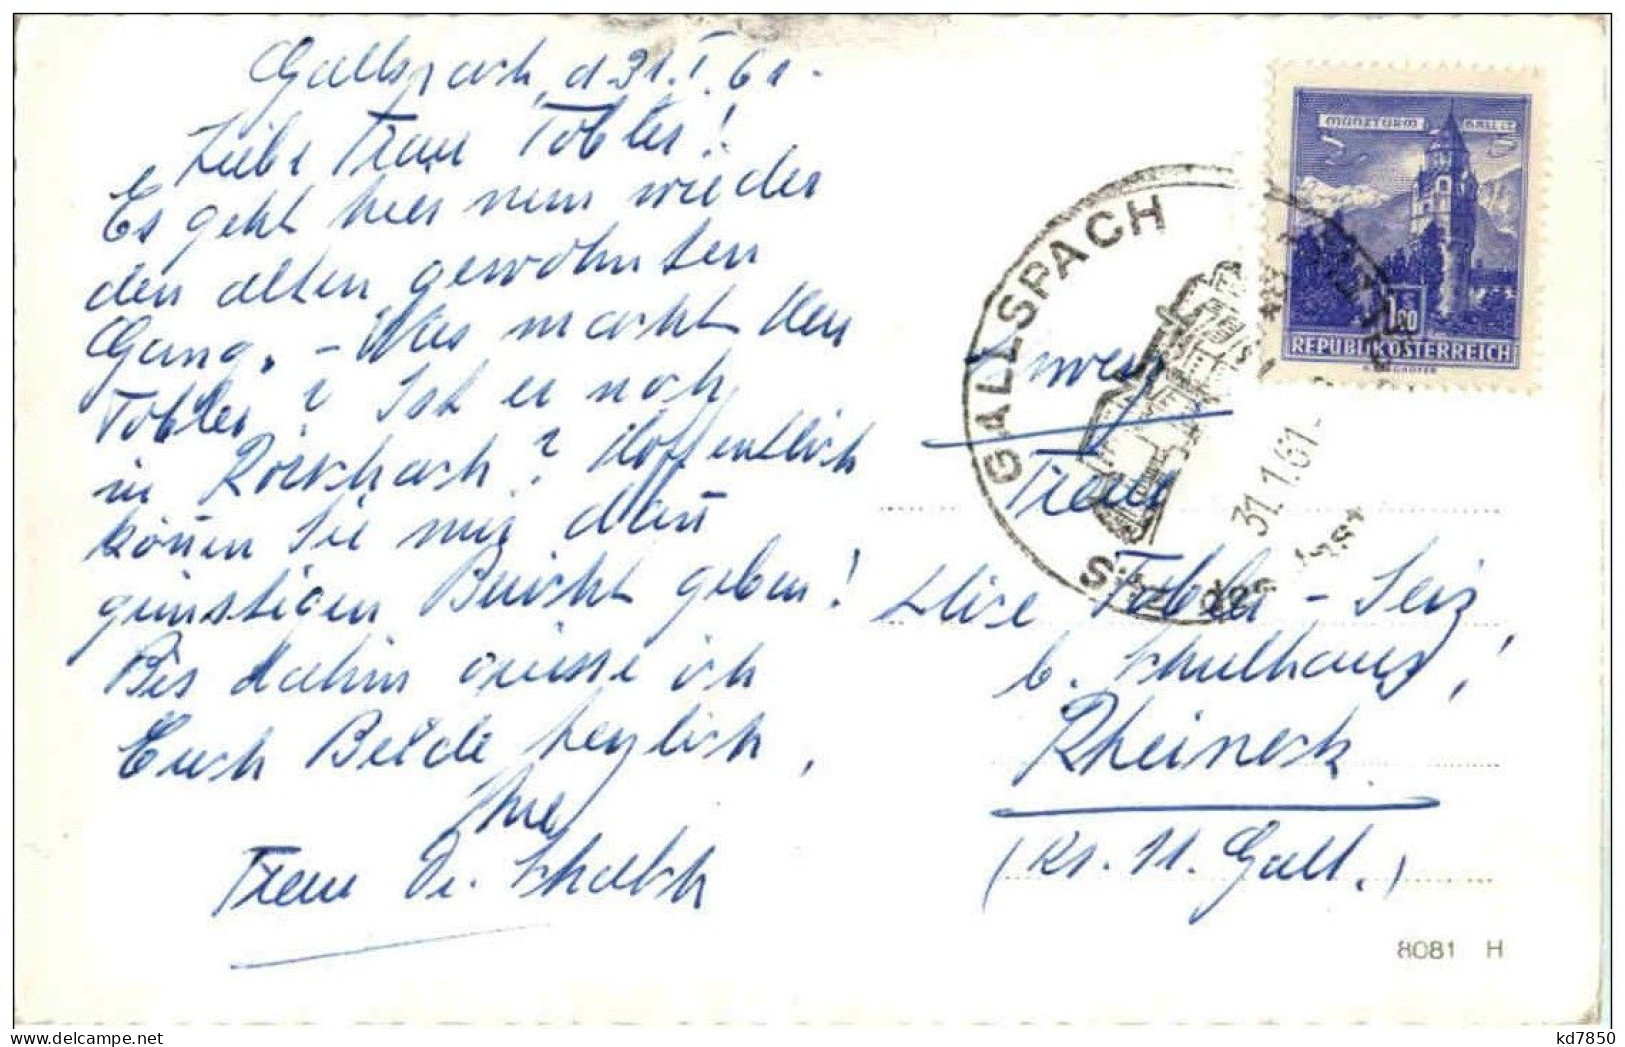 Gallspach, d 31.I.61.
Liebe Frau Tobler!
Es geht hier nun wieder
den alten gewohnten
Gang. – Was macht Herr
Tobler? Ist er noch
in Rorschach? Hoffentlich
können Sie mir dann
günstigen Bericht geben!
Bis dahin grüsse ich
Euch Beide herzlich,
Ihre
Frau Dr. Schalch
MÜNZTURM HALL i.T.
1.80
REPUBLIK ÖSTERREICH
GALLSPACH
31.1.61
Sitz des Inst
Schweiz
Frau
Elise Tobler – Seiz
b. Schulhaus,
Rheineck
(Kt. St. Gall.)
8081 H
kd7850